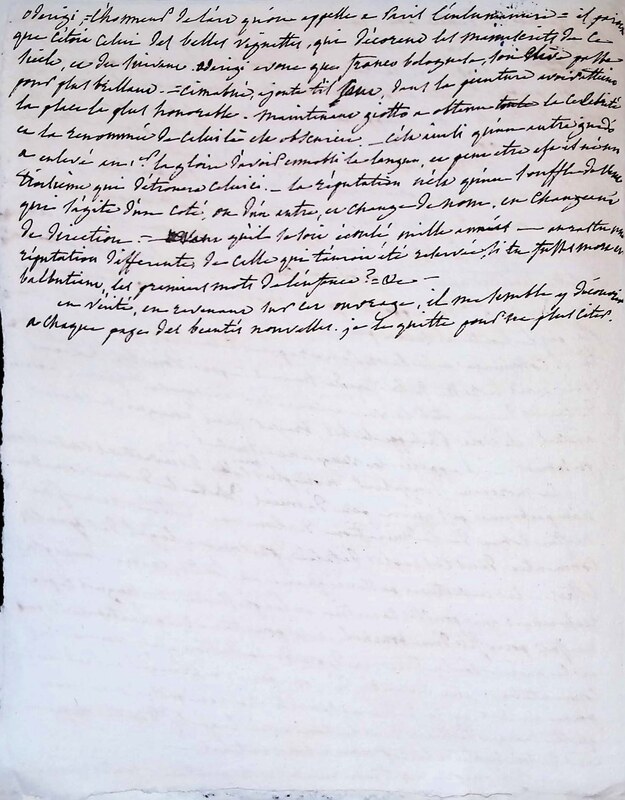 oderigi, = l'honneur de l'art qu'on appelle a Paris l'enluminure = il paroit
que c'étoit celui des belles vignettes, qui décorent les manuscrits de ce
siècle, et du suivant. oderigi avoue que franco bolognese, son élève passe
pour plus brillant. = cimabue, ajoute t'il, dans la peinture avoit obtenu
la place la plus honorable. maintenant giotto a obtenu toute la célébrité
et la renommée de celui là est obscurcie. — C'est ainsi qu'un autre guido
a enlevé au 1er la gloire d'avoir ennobli la langue, et peut etre est il né un
troisième qui détronera celui ci. — la réputation n'est qu'un souffle de vent
qui s'agite d'un coté, ou d'un autre, et change de nom, en changeant
de direction. = avant qu'il se soit écoulé mille années — auras tu une
réputation différente de celle qui t'auroit été reservée, si tu fusses mort en
balbutiant, les premiers mots de l'enfance ? = &c —
en vérité, en revenant sur cet ouvrage, il me semble y découvrir
a chaque page des beautés nouvelles. je le quitte pour ne plus citer.